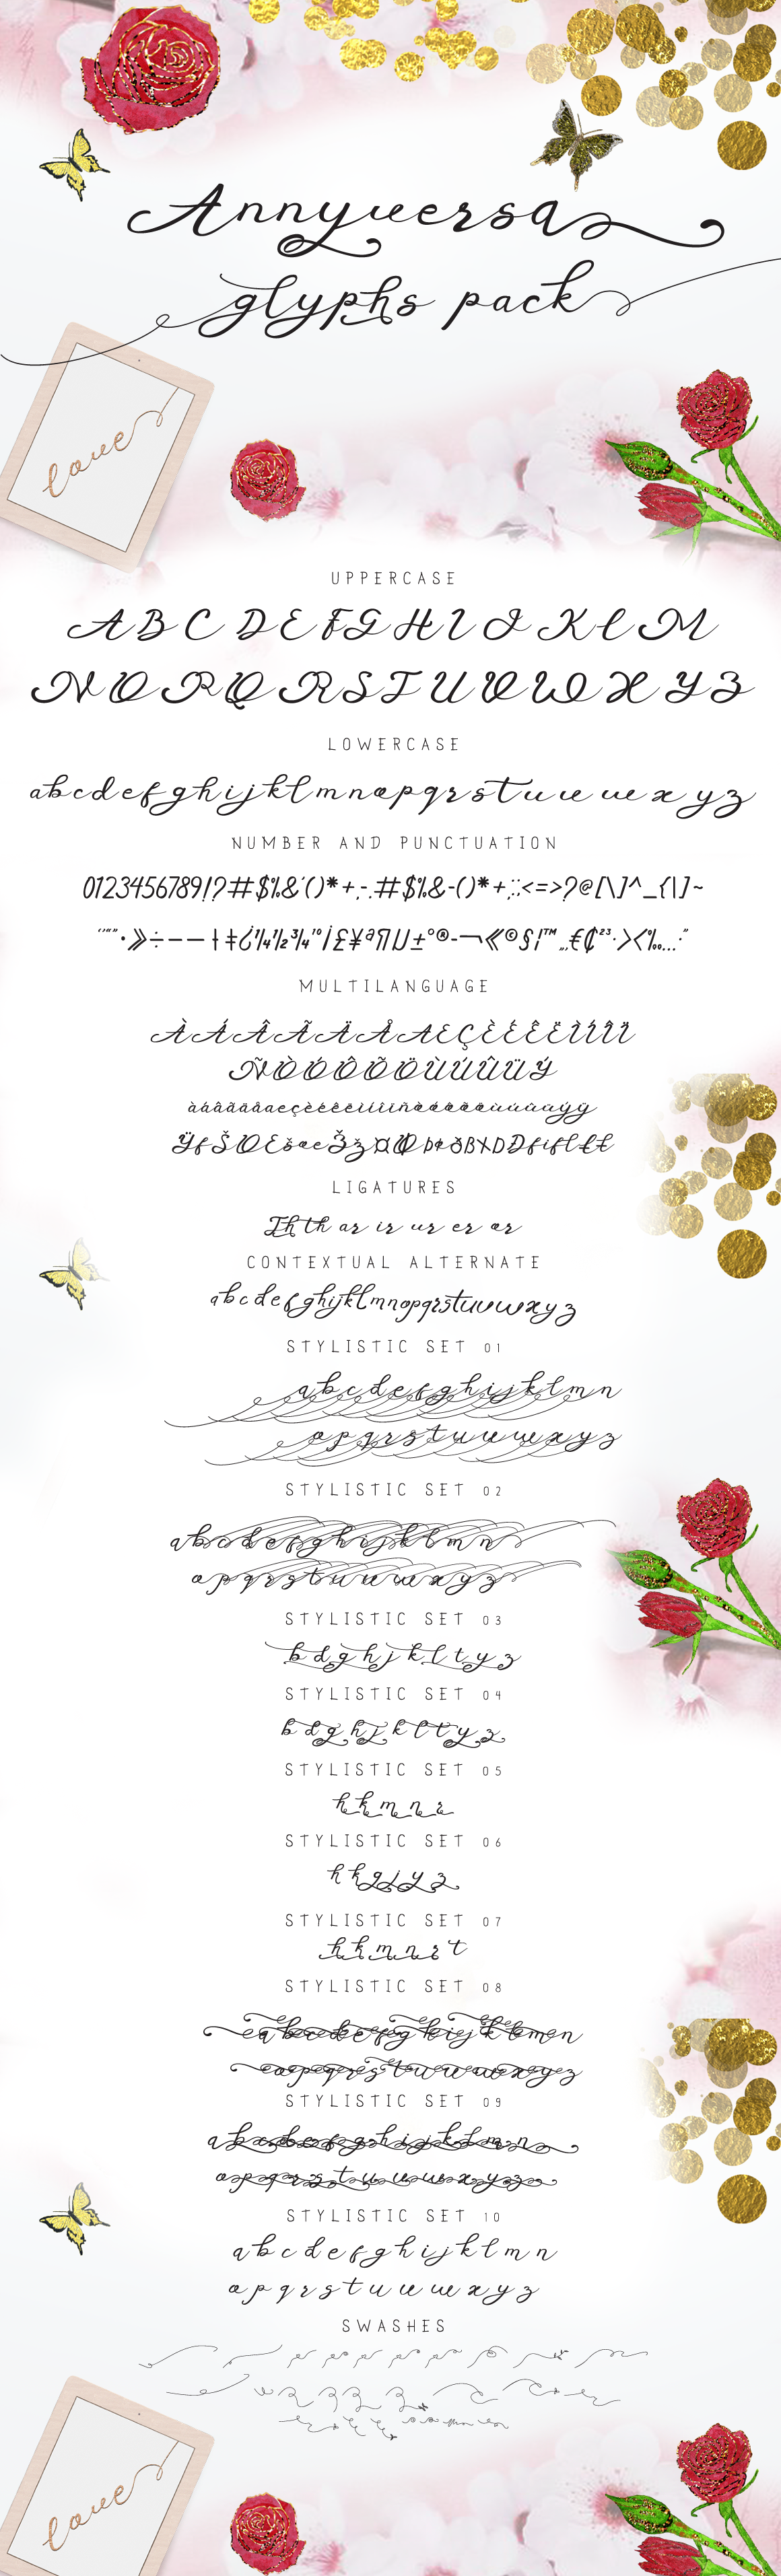 Annyversa
glyphs pack
love
UPPERCASE
A B C D E F G H I J K L M
N O P Q R S T U V W X Y Z
LOWERCASE
a b c d e f g h i j k l m n o p q r s t u v w x y z
NUMBER AND PUNCTUATION
0123456789!?#$%&'()*+,-.#$%&-()*+,:;<=>?@[\]^_{|}~
MULTILANGUAGE
À Á Â Ã Ä Å Æ Ç È É Ê Ë Ì Í Î Ï
Ñ Ò Ó Ô Õ Ö Ù Ú Û Ü Ý
LIGATURES
Th th ar ir ur er or
CONTEXTUAL ALTERNATE
a b c d e f g h i j k l m n o p q r s t u v w x y z
STYLISTIC SET 01
a b c d e f g h i j k l m n
o p q r s t u v w x y z
STYLISTIC SET 02
a b c d e f g h i j k l m n
o p q r s t u v w x y z
STYLISTIC SET 03
b d g h j k l t y z
STYLISTIC SET 04
b d g h j k l t y z
STYLISTIC SET 05
h k m n r
STYLISTIC SET 06
h k g j y z
STYLISTIC SET 07
h k m n r t
STYLISTIC SET 08
a b c d e f g h i j k l m n
o p q r s t u v w x y z
STYLISTIC SET 09
a b c d e f g h i j k l m n
o p q r s t u v w x y z
STYLISTIC SET 10
a b c d e f g h i j k l m n
o p q r s t u v w x y z
SWASHES
love